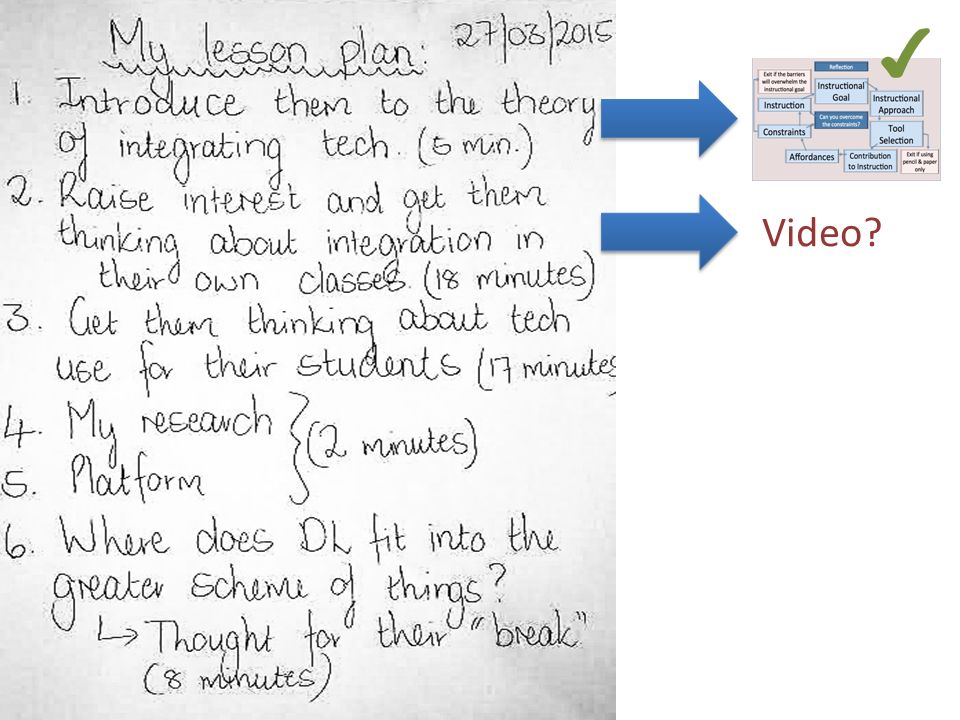 My lesson plan: 27/08/2015
1. Introduce them to the theory
of integrating tech. (5 min.)
2. Raise interest and get them
thinking about integration in
their own classes. (18 minutes)
3. Get them thinking about tech
use for their students (17 minutes
4. My research
(2 minutes)
5. Platform
6. Where does DL fit into the
greater scheme of things?
↳ Thought for their "break"
(8 minutes)
✓
Reflection
Exit if the barriers
will overwhelm the
instructional goal
Instructional
Goal
Instructional
Approach
Instruction
Can you overcome
the constraints?
Constraints
Tool
Selection
Affordances
Contribution
to Instruction
Exit if using
pencil & paper
only
Video?